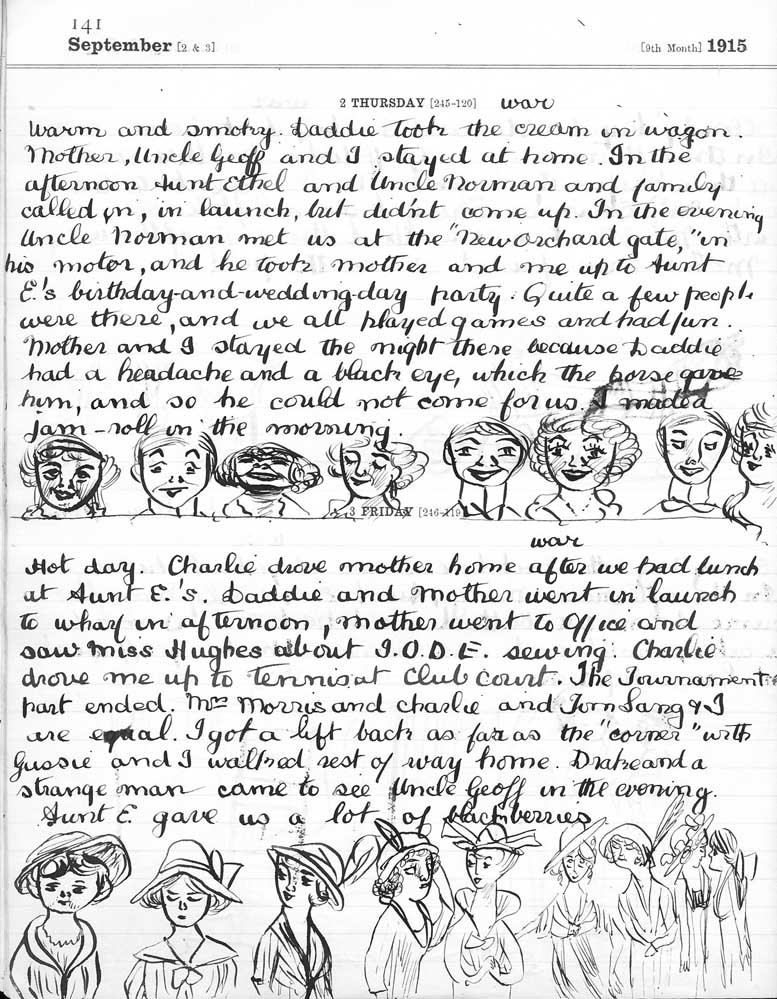 141
September [2 & 3] [9th Month] 1915
2 THURSDAY [245-120] war
Warm and smoky. Daddie took the cream in wagon.
Mother, Uncle Geoff and I stayed at home. In the
afternoon Aunt Ethel and Uncle Norman and family
called in, in launch, but didn't come up. In the evening
Uncle Norman met us at the "New Orchard gate," in
his motor, and he took mother and me up to Aunt
E.'s birthday-and-wedding-day party. Quite a few people
were there, and we all played games and had fun.
Mother and I stayed the night there because Daddie
had a headache and a black eye, which the horse gave
him, and so he could not come for us. I made a
jam-roll in the morning.
3 FRIDAY [246-119]
war
Hot day. Charlie drove mother home after we had lunch
at Aunt E.'s. Daddie and Mother went in launch
to wharf in afternoon, Mother went to Office and
saw Miss Hughes about I.O.D.E. sewing. Charlie
drove me up to tennis at Club Court. The Tournament
part ended. Mrs Morris and Charlie and Tom Lang & I
are equal. I got a lift back as far as the "corner" with
Gussie and I walked rest of way home. Drake and a
strange man came to see Uncle Geoff in the evening.
Aunt E. gave us a lot of blackberries